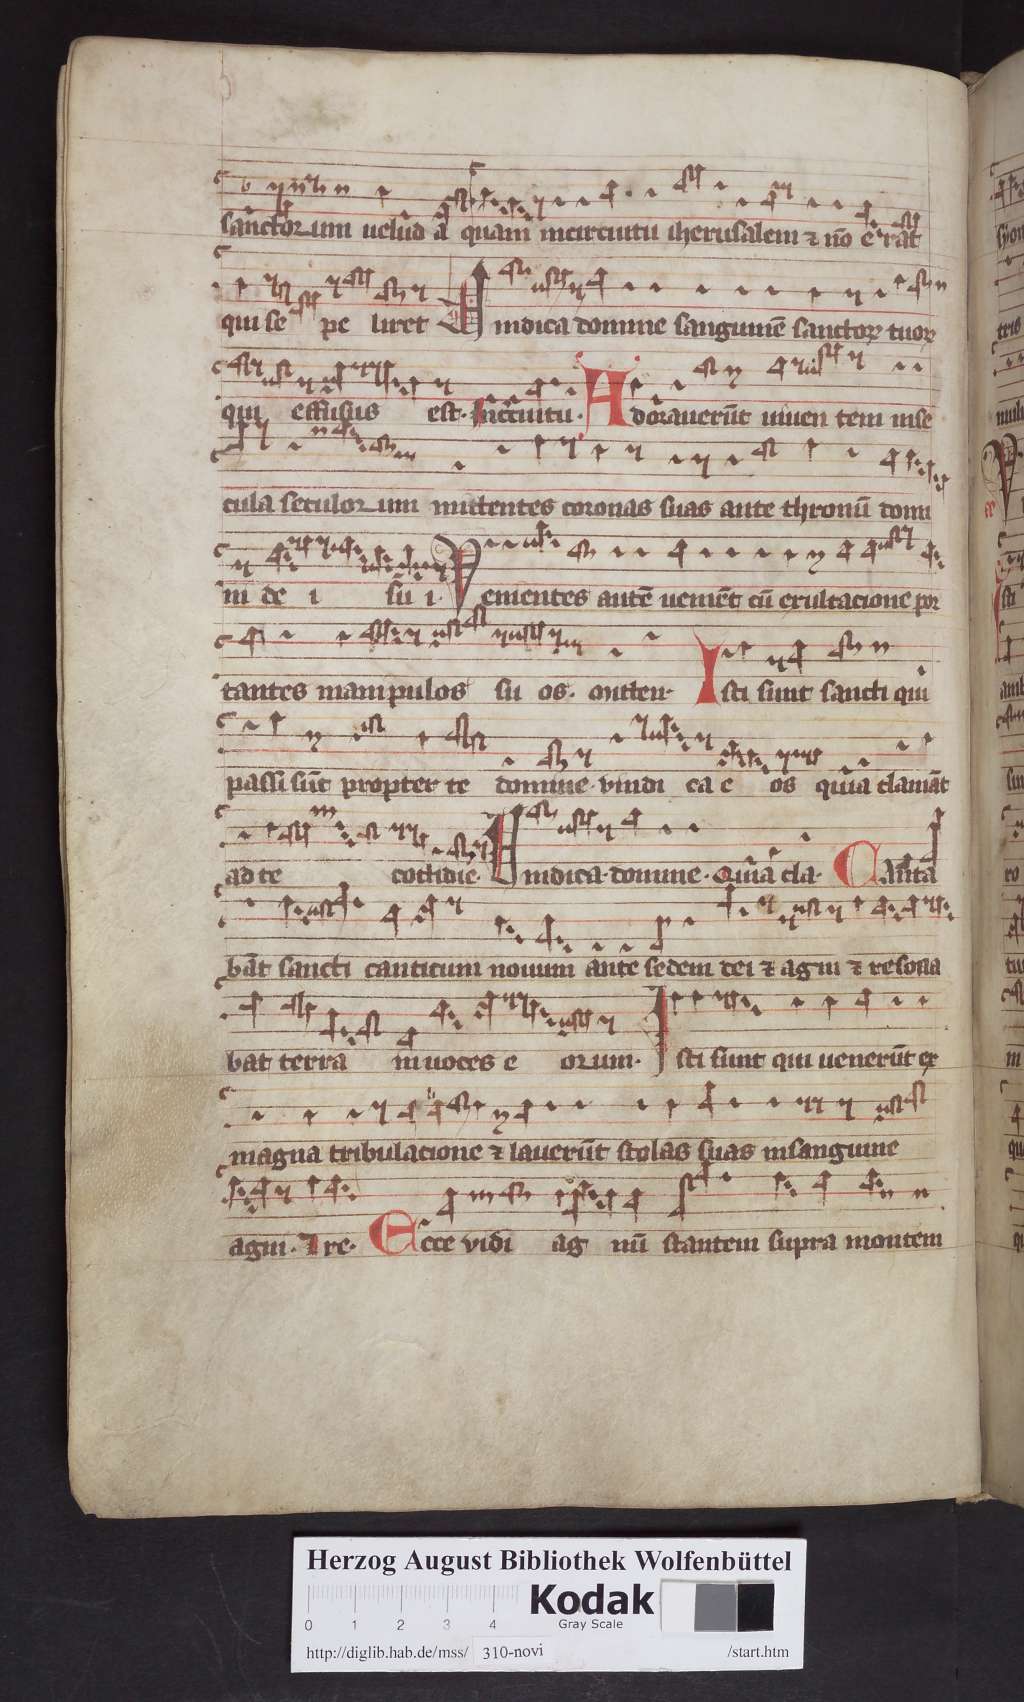 sanctorum uelud a quam incircuitu iherusalem ⁊ nō erat
qui se pe liret Vindica domine sanguinē sanctoꝝ tuoꝝ
qui effusus est. Incircuitu. Adorauerūt uiuen tem inse
cula seculorum mittentes coronas suas ante thronū domi
ni de i su i. Venientes autē ueniēt cū exultacione por
tantes manipulos su os. mitten. Isti sunt sancti qui
passi sūt propter te domine vindi ca e os quia clamāt
ad te cottidie. Vindica domine. Quia cla. Canta
bāt sancti canticum nouum ante sedem dei ⁊ agni ⁊ resona
bat terra in uoces e orum. Isti sunt qui uenerūt ex
magna tribulacione ⁊ lauerūt stolas suas insanguine
agni. Ecce vidi ag nū stantem supra montem
Herzog August Bibliothek Wolfenbüttel
0 1 2 3 4
Kodak
Gray Scale
http://diglib.hab.de/mss/ 310-novi /start.htm